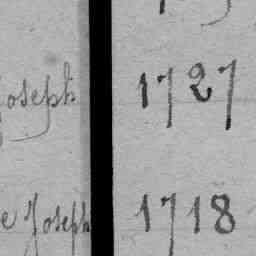 Joseph 1727
e Joseph 1718